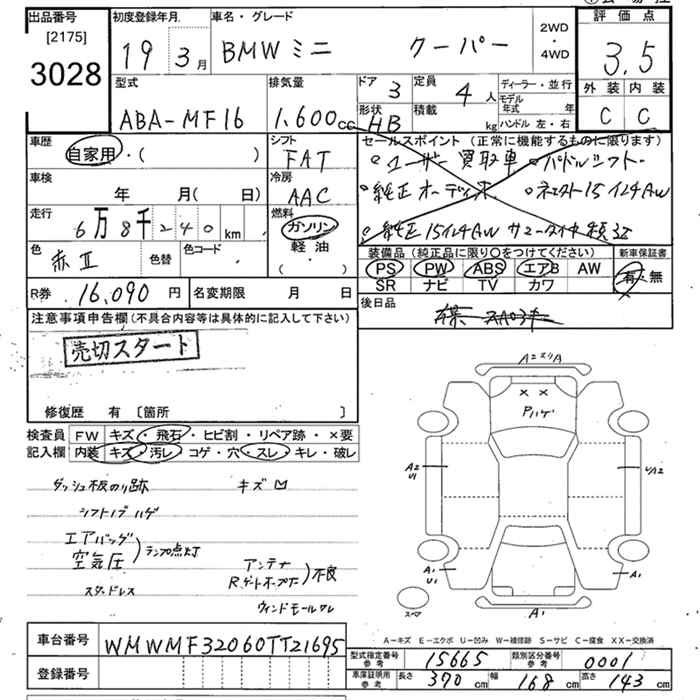 出品番号
[2175]
3028
初度登録年月
19 3月
車名・グレード
BMW ミニ クーパー
2WD
・
4WD
評価点
3.5
外装 内装
C C
型式
ABA-MF16
排気量
1,600cc
ドア 3
定員 4人
形状 HB
積載 kg
ディーラー・並行
モデル年式 年
ハンドル 左・右
車歴
自家用・( )
シフト
FAT
セールスポイント (正常に機能するものに限ります)
○ユーザー買取車 ○パドルシフト
○純正オーディオ
○純正15インチAW
車検
年 月( 日)
冷房
AAC
走行
6万8千240km
燃料
ガソリン
軽油
( ・ )
色 赤Ⅱ
色替
色コード
装備品 (純正品に限り○をつけてください)
PS PW ABS エアB AW
SR ナビ TV カワ
新車保証書
有・無
R券 16,090円
名変期限 月 日
後日品
注意事項申告欄(不具合内容等は具体的に記入して下さい)
売切スタート
修復歴 有 [箇所 ]
検査員 FW キズ・飛石・ヒビ割・リペア跡・×要
記入欄 内装 キズ・汚レ・コゲ・穴・スレ・キレ・破レ
ダッシュ板のり跡 キズ凹
シフトノブハゲ
エアバッグ
空気圧
ランプ点灯
アンテナ
Rゲートオープナー
不良
スタッドレス
ウィンドモールワレ
A2スリA
× ×
Pハゲ
A2
U1
U1A2
A1
U1
A1
スペア
A1
A-キズ E-エクボ U-凹み W-補修跡 S-サビ C-腐食 XX-交換済
車台番号 WMWMF32060TT21695
登録番号
型式指定番号 参考 15665
類別区分番号 参考 0001
車庫証明用 参考 長さ 370cm 幅 168cm 高さ 143cm